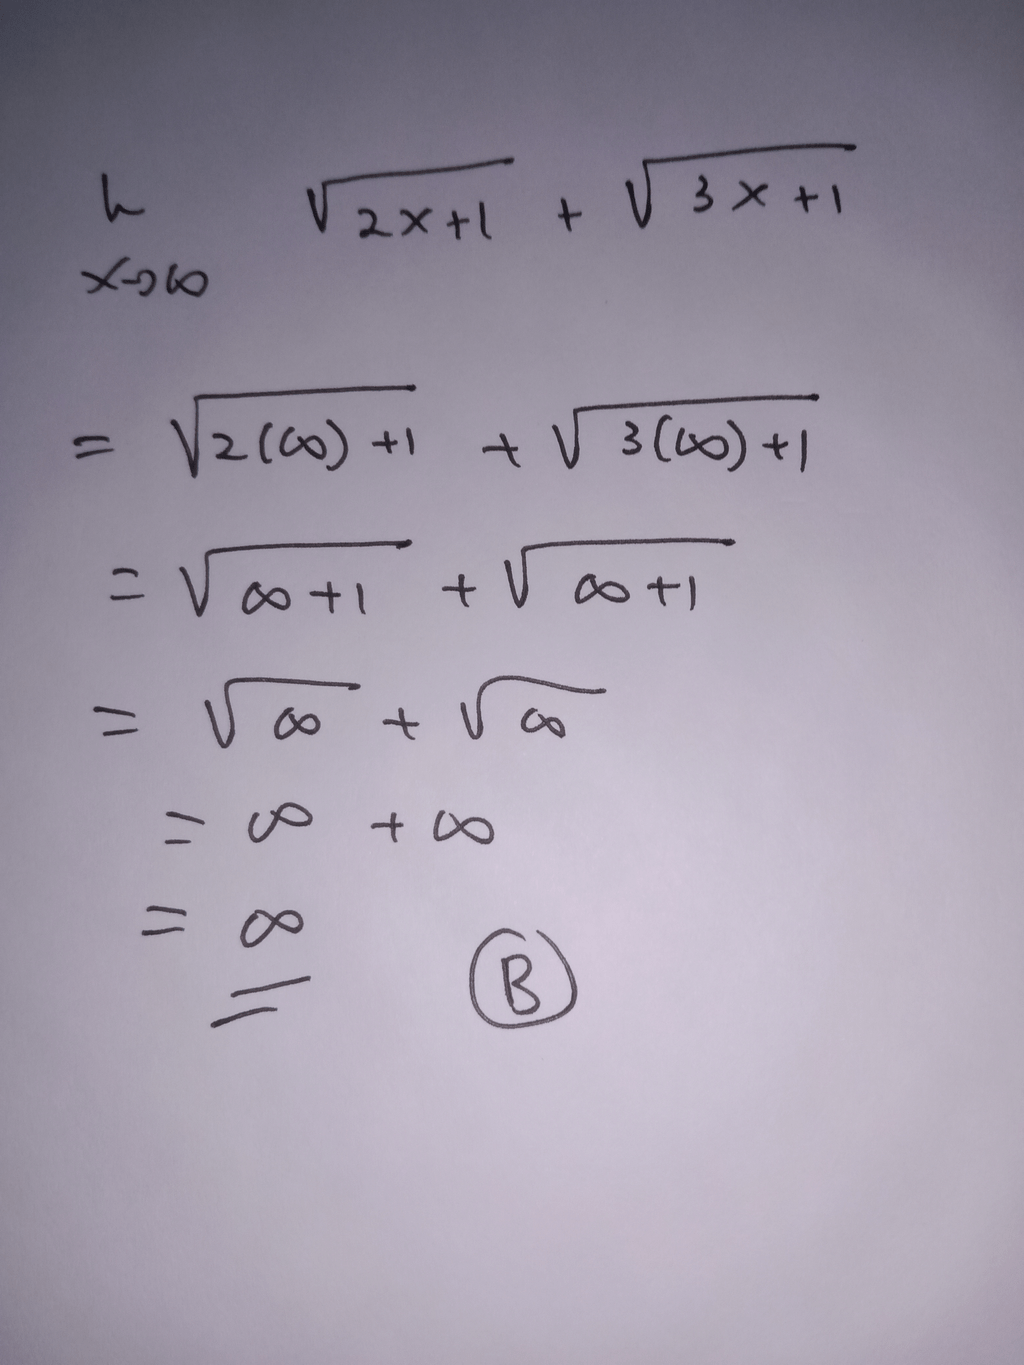 h √2x+1 + √3x+1
x→∞
= √2(∞)+1 + √3(∞)+1
= √∞+1 + √∞+1
= √∞ + √∞
= ∞ + ∞
= ∞
B